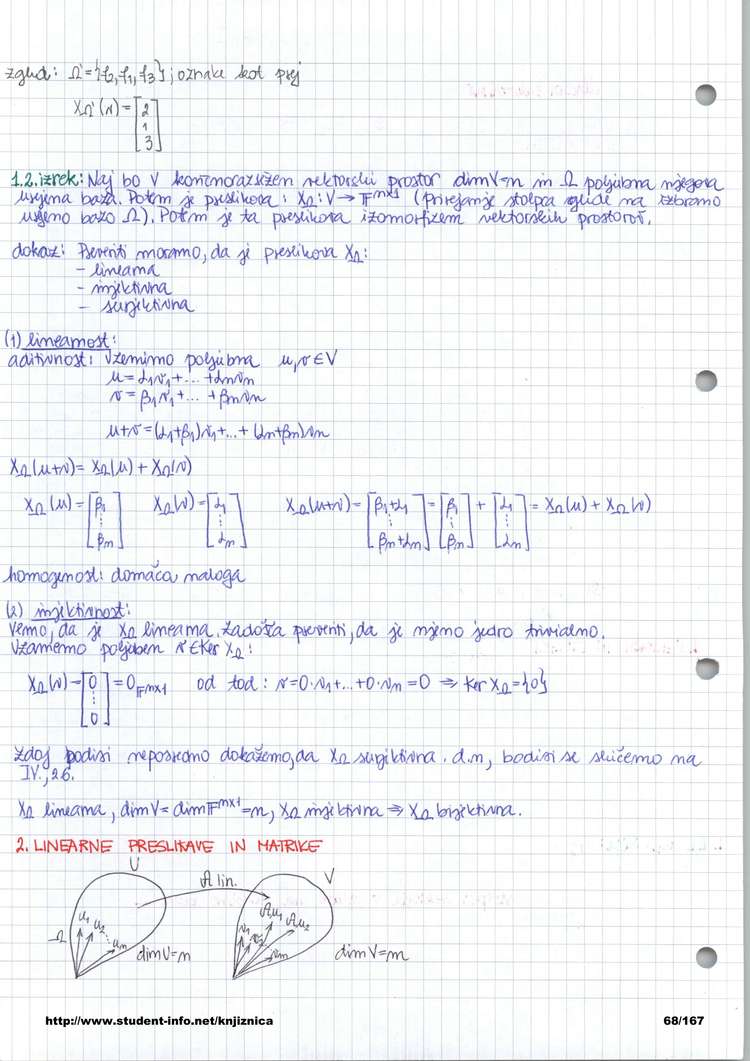 zgled: Ω' = {f2, f1, f3}; oznake kot prej
XΩ'(v) = [2 1 3]
1.2. izrek: Naj bo V končnorazsežen vektorski prostor dimV=n in Ω poljubna njegova
urejena baza. Potem je preslikava: XΩ: V → F^{n×1} (prirejanje stolpca glede na izbrano
urejeno bazo Ω). Potem je ta preslikava izomorfizem vektorskih prostorov.
dokaz: Preveriti moramo, da je preslikava XΩ:
- linearna
- injektivna
- surjektivna
(1) linearnost:
aditivnost: Vzemimo poljubna u, v ∈ V
u = α1v1 + ... + αnvn
v = β1v1 + ... + βnvn
u+v = (α1+β1)v1 + ... + (αn+βn)vn
XΩ(u+v) = XΩ(u) + XΩ(v)
XΩ(u) = [β1 ⋮ βn] XΩ(v) = [α1 ⋮ αn] XΩ(u+v) = [β1+α1 ⋮ βn+αn] = [β1 ⋮ βn] + [α1 ⋮ αn] = XΩ(u) + XΩ(v)
homogenost: domača naloga
(2) injektivnost:
Vemo, da je XΩ linearna. Zadošča preveriti, da je njeno jedro trivialno.
Vzamemo poljuben v ∈ Ker XΩ:
XΩ(v) = [0 ⋮ 0] = 0_{F^{n×1}} od tod: v = 0·v1 + ... + 0·vn = 0 ⇒ Ker XΩ = {0}
Zdaj bodisi neposredno dokažemo, da XΩ surjektivna. d.n, bodisi se skličemo na
IV., 2.6.
XΩ linearna, dimV = dim F^{n×1} = n, XΩ injektivna ⇒ XΩ bijektivna.
2. LINEARNE PRESLIKAVE IN MATRIKE
U
A lin.
V
Ω u1 u2 ... un dimU=n
v1 v2 vm Au1 Au2 dimV=m
http://www.student-info.net/knjiznica
68/167